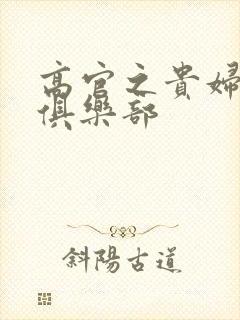 高官之貴婦
俱樂部
斜陽古道